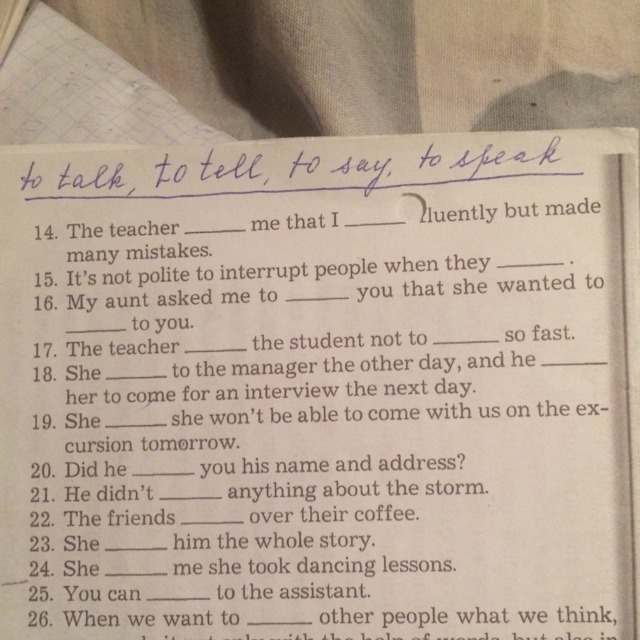 to talk, to tell, to say, to speak
14. The teacher ______ me that I ______ luently but made
many mistakes.
15. It's not polite to interrupt people when they ______ .
16. My aunt asked me to ______ you that she wanted to
______ to you.
17. The teacher ______ the student not to ______ so fast.
18. She ______ to the manager the other day, and he ______
her to come for an interview the next day.
19. She ______ she won't be able to come with us on the ex-
cursion tomorrow.
20. Did he ______ you his name and address?
21. He didn't ______ anything about the storm.
22. The friends ______ over their coffee.
23. She ______ him the whole story.
24. She ______ me she took dancing lessons.
25. You can ______ to the assistant.
26. When we want to ______ other people what we think,
it not only with the help of words, but also in